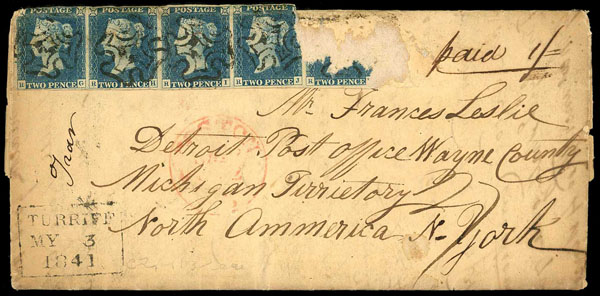 POSTAGE POSTAGE POSTAGE POSTAGE
H G TWO PENCE H H TWO PENCE H I TWO PENCE H J TWO PENCE H PENCE
paid 1/-
Mr Frances Leslie
Detroit Post office Wayne County
Michigan Terrietory
North Ammerica N. York
TURRIFF
MY 3
1841